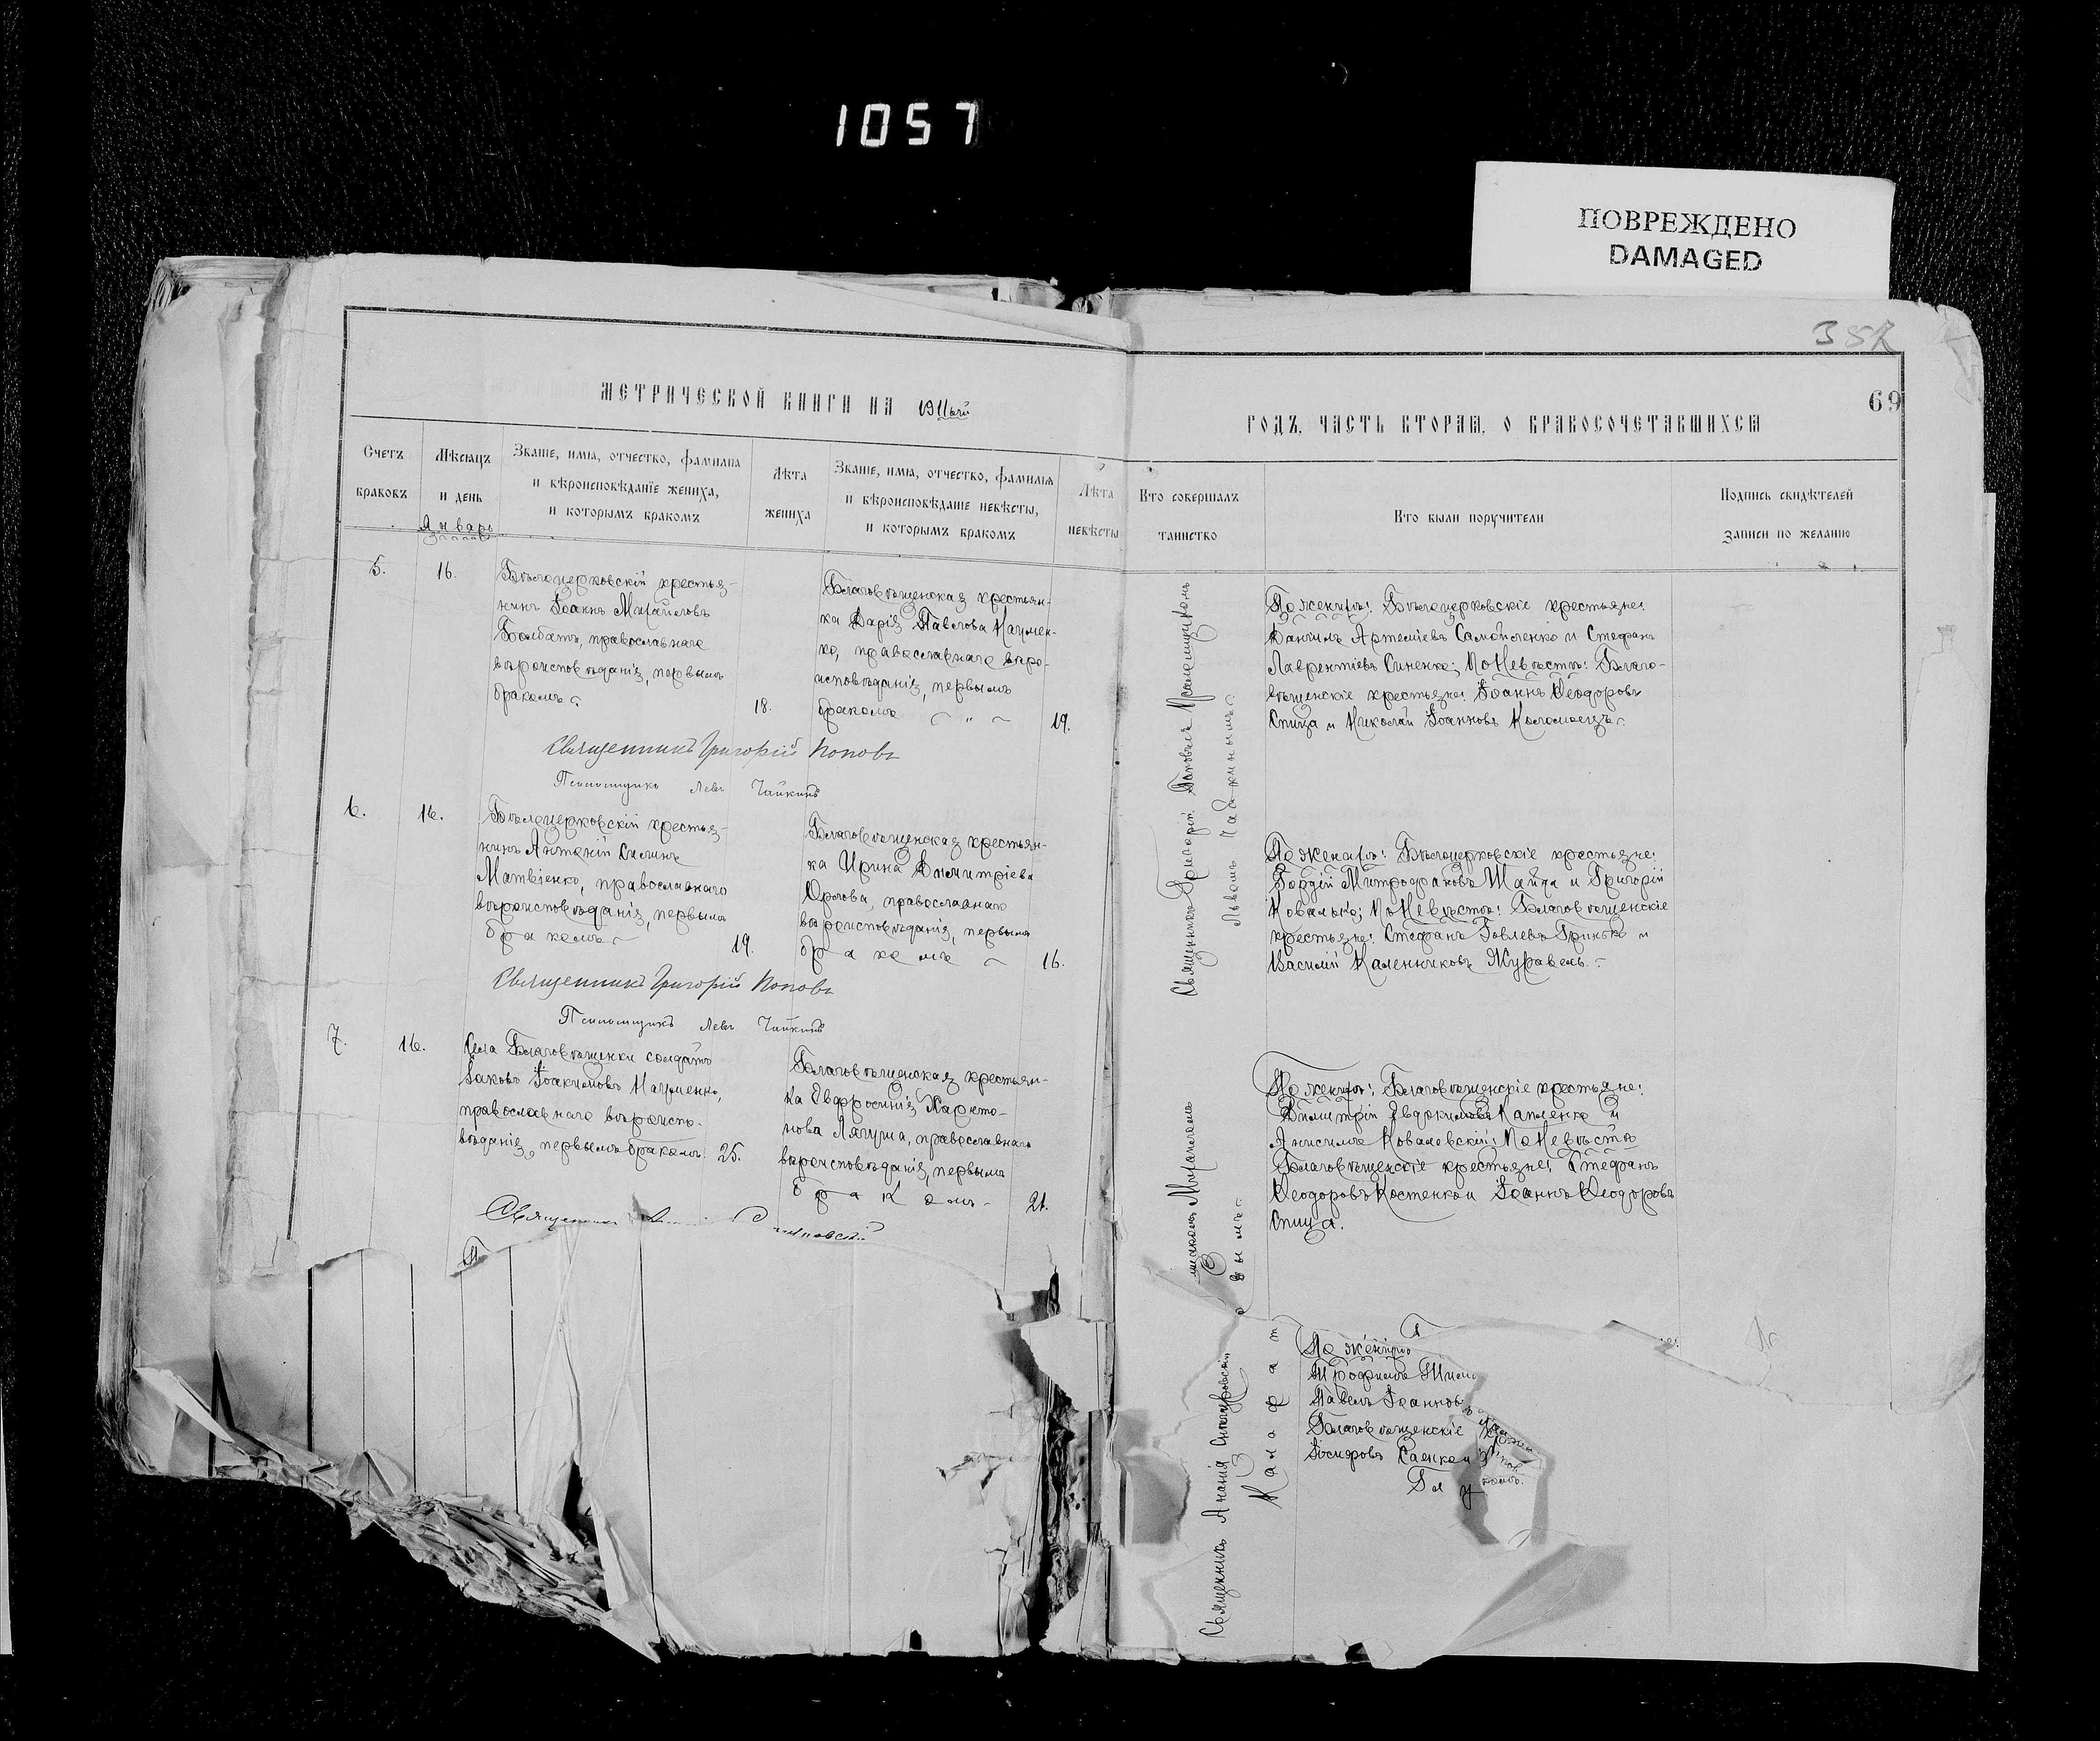 1057
ПОВРЕЖДЕНО
DAMAGED
352
69
МЕТРИЧЕСКОЙ КНИГИ НА 1911ый
ГОДЪ, ЧАСТЬ ВТОРАЯ, О БРАКОСОЧЕТАВШИХСЯ
Счетъ
браковъ
Мѣсяцъ
и день
Январь
Званіе, имя, отчество, фамилія
и вѣроисповѣданіе жениха,
и которымъ бракомъ
Лѣта
жениха
Званіе, имя, отчество, фамилія
и вѣроисповѣданіе невѣсты,
и которымъ бракомъ
Лѣта
невѣсты
Кто совершалъ
таинство
Кто были поручители
Подпись свидѣтелей
записи по желанію
5.
16.
Бѣлоцерковскій крестья-
нинъ Іоаннъ Михайловъ
Балбатъ, православнаго
вѣроисповѣданія, первымъ
бракомъ
18.
Благовѣщенская крестьян-
ка Дарія Павлова Каумен-
ко, православнаго вѣро-
исповѣданія, первымъ
бракомъ „
19.
Священникъ Григорій
Львомъ Чайкинымъ
По женихѣ: Бѣлоцерковскіе крестьяне:
Даніилъ Артеміевъ Самойленко и Стефанъ
Лаврентіевъ Синенко; По Невѣстѣ: Благо-
вѣщенскіе крестьяне: Іоаннъ Ѳеодоровъ
Спица и Николай Іоанновъ Коломоецъ
Священникъ Григорій Поповъ
Псаломщикъ Левъ Чайкинъ
6.
16.
Бѣлоцерковскій крестья-
нинъ Антоній Силинъ
Матвіенко, православнаго
вѣроисповѣданія, первымъ
бракомъ
19.
Благовѣщенская крестьян-
ка Ирина Димитріева
Орлова, православнаго
вѣроисповѣданія, первымъ
бракомъ
16.
По женихѣ: Бѣлоцерковскіе крестьяне:
Гордій Митрофановъ Шайда и Григорій
Ковалько; По Невѣстѣ: Благовѣщенскіе
крестьяне: Стефанъ Іовлевъ Гринько и
Василій Каленниковъ Журавель.
Священникъ Григорій Поповъ
Псаломщикъ Левъ Чайкинъ
7.
16.
Села Благовѣщенки солдатъ
Іаковъ Іоакимовъ Науменко,
православнаго вѣроиспо-
вѣданія, первымъ бракомъ.
25.
Благовѣщенская крестьян-
ка Евфросинія Харито-
нова Лягуша, православнаго
вѣроисповѣданія, первымъ
бракомъ
21.
По женихѣ: Благовѣщенскіе крестьяне:
Димитрій Евдокимовъ Капленко и
Анисимъ Ковалевскій; По Невѣстѣ
Благовѣщенскіе крестьяне: Стефанъ
Ѳеодоровъ Костенко и Іоаннъ Ѳеодоровъ
Спица.
Священникъ
Священникъ Ананія
По женихѣ
Трофимъ
Павелъ Іоаннов
Благовѣщенскіе
Саенко и